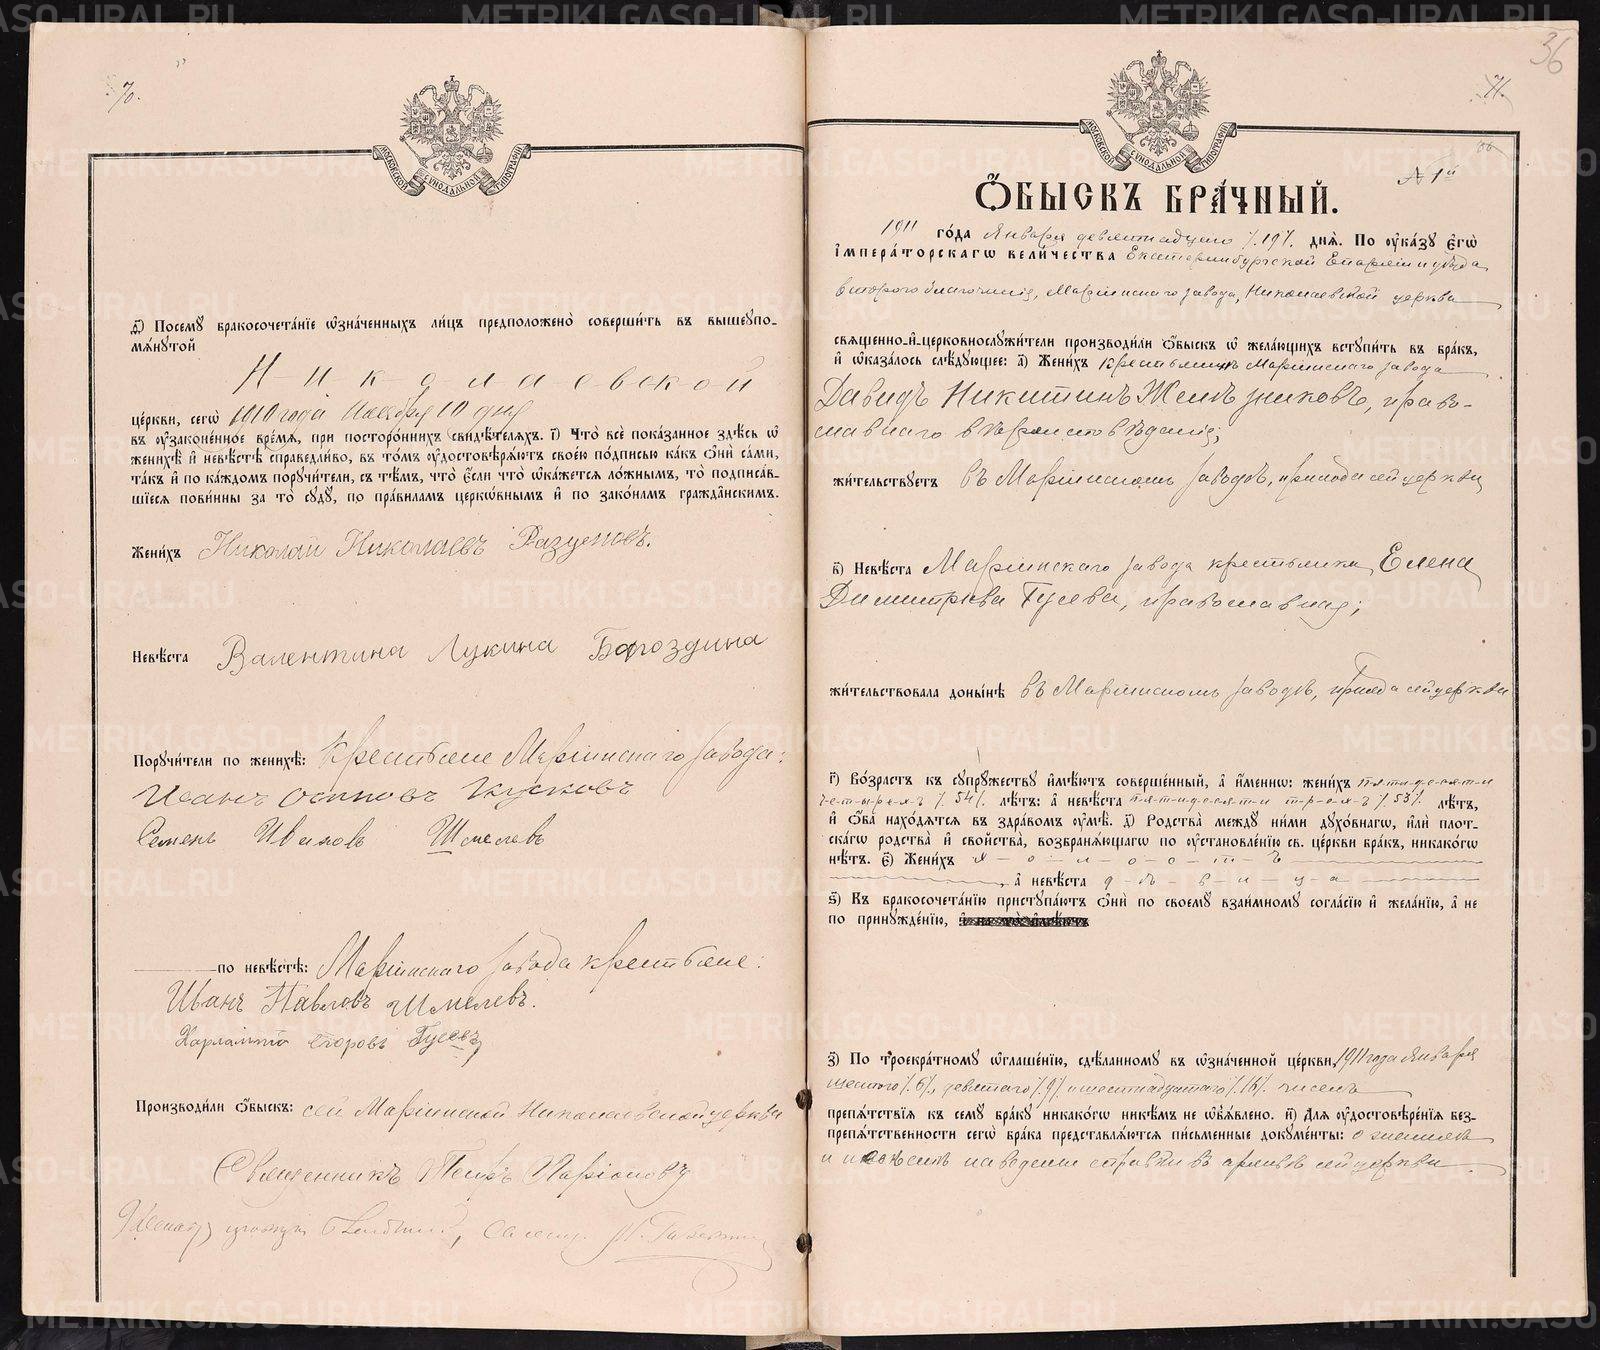 70.
МОСКОВСКОЙ СѴНОДАЛЬНОЙ ТИПОГРАФІИ
д҃) Посемꙋ бракосочета́нїе ѡ҆зна́ченныхъ ли́цъ предположено̀ соверши́ть въ вышеꙋпо-
мѧ́нꙋтой
Николаевской
це́ркви, сегѡ̀ 1910 года Ноября 10 дня
въ ᲂу҆зако́не́нное вре́мѧ, при посторо́ннихъ свидѣ́телѧхъ. і҃) Что̀ всѐ пока́занное здѣ́сь ѡ҆
женихѣ̀ и҆ невѣ́стѣ справедли́во, въ то́мъ ᲂу҆достовѣрѧ́ютъ свое́ю по́дписью ка́къ ѻ҆нѝ са́ми,
та́къ и҆ по ка́ждомъ порꙋчи́тели, съ тѣ́мъ, что̀ є҆́сли что̀ ѡ҆ка́жетсѧ ло́жнымъ, то̀ подписа́в-
шїесѧ пови́нны за то̀ сꙋдꙋ̀, по пра́виламъ церко́внымъ и҆ по зако́намъ гражда́нскимъ.
Жени́хъ Николай Николаевъ Разумовъ.
Невѣ́ста Валентина Лукина Бороздина
Порꙋчи́тели по женихѣ̀: Крестьяне Маріинскаго завода:
Иванъ Осиповъ Кусковъ
Семенъ Ивановъ Шмелевъ
по невѣ́стѣ: Маріинскаго завода крестьяне:
Иванъ Павловъ Шмелевъ.
Харлампій Егоровъ Гусевъ
Производи́ли ѻ҆́быскъ: сей Маріинской Николаевской церкви
Священникъ Петръ Ларіоновъ
36
71.
МОСКОВСКОЙ СѴНОДАЛЬНОЙ ТИПОГРАФІИ
№ 1й
Ѻ҆́БЫСКЪ БРА́ЧНЫЙ.
1911 го́да Января девятнадцатаго /19/. днѧ̀. По ᲂу҆ка́зꙋ є҆гѡ̀
і҆мпера́торскагѡ вели́чества Екатеринбургской Епархіи и уѣзда
второго благочинія, Маріинскаго завода, Николаевской церкви
свѧще́нно-и҆-церковнослꙋжи́тели производи́ли ѻ҆́быскъ ѡ҆ жела́ющихъ встꙋпи́ть въ бра́къ,
и҆ ѡ҆каза́лось слѣ́дꙋющее: а҃) Жени́хъ крестьянинъ Маріинскаго завода
Давидъ Никитинъ Желѣзниковъ, право-
славнаго вѣроисповѣданія;
жи́тельствꙋетъ въ Маріинскомъ заводѣ, прихода сей церкви
в҃) Невѣ́ста Маріинскаго завода крестьянка Елена
Димитріева Гусева, православная;
жи́тельствовала доны́нѣ въ Маріинскомъ заводѣ, прихода сей церкви
г҃) Во́зрастъ къ сꙋпрꙋ́жествꙋ и҆мѣ́ютъ соверше́нный, а҆ и҆́меннѡ: жени́хъ пятидесяти
четырехъ /54/. лѣ́тъ: а҆ невѣ́ста пятидесяти трехъ /53/. лѣ́тъ,
и҆ ѻ҆́ба нахо́дѧтсѧ въ здра́вомъ ᲂу҆мѣ̀. д҃) Родства̀ междꙋ ни́ми дꙋхо́внагѡ, и҆лѝ пло́т-
скагѡ родства̀ и҆ сво́йства, возбранѧ́ющагѡ по ᲂу҆становле́нїю св. це́ркви бра́къ, никако́гѡ
нѣ́тъ. є҃) Жени́хъ холостъ
, а҆ невѣ́ста дѣвица
ѕ҃) Къ бракосочета́нїю пристꙋпа́ютъ ѻ҆нѝ по своемꙋ̀ взаи́мномꙋ согла́сїю и҆ жела́нїю, а҆ не
по принꙋжде́нїю,
з҃) По троекра́тномꙋ ѡ҆глаше́нїю, сдѣ́ланномꙋ въ ѡ҆зна́ченной це́ркви, 1911 года Января
шестого /6/., девятаго /9/ и шестнадцатаго /16/. чиселъ
препѧ́тствїѧ къ семꙋ̀ бра́кꙋ никако́гѡ никѣ́мъ не ѡ҆б̾ѧ́влено. и҃) Длѧ ᲂу҆достовѣ́ренїѧ без-
препѧ́тственности сегѡ̀ бра́ка представлѧ́ютсѧ пи́сьменные докꙋме́нты: о женихѣ
и невѣстѣ наведены справки въ архивѣ сей церкви.
METRIKI.GASO-URAL.RU